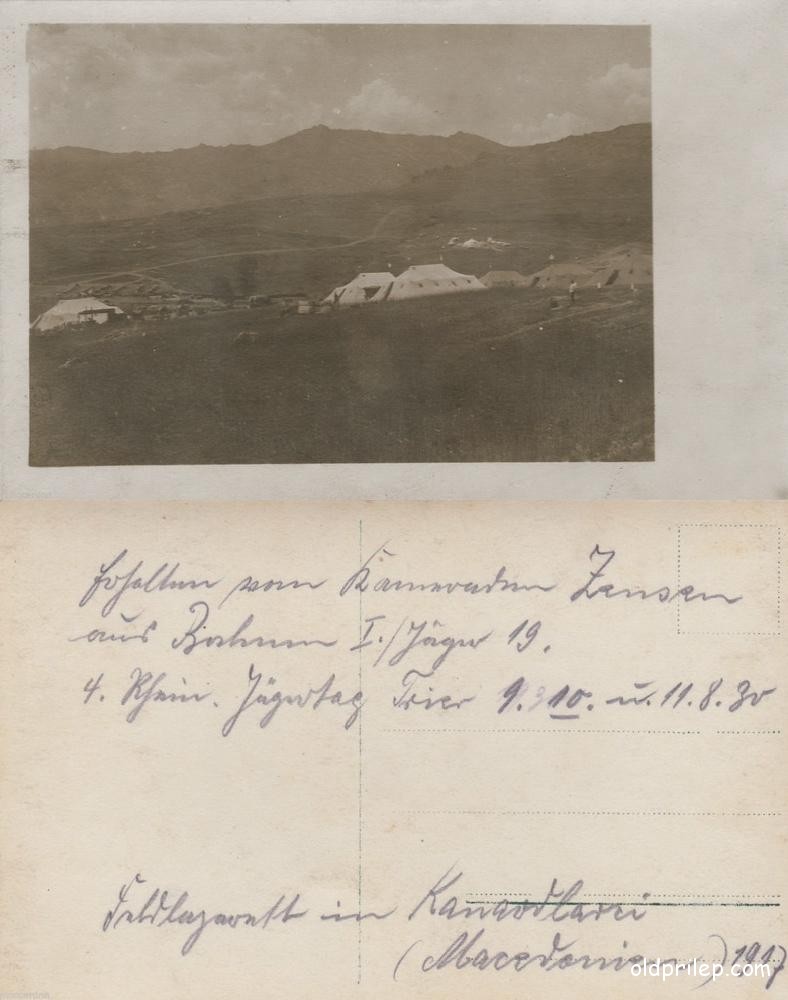 Erhalten vom Kameraden Zensen
aus Bochum I./Jäger 19.
4. Rhein. Jägertag Trier 9. 10. u. 11. 8. 30
Feldlazarett in
(Macedonien) 1917
oldprilep.com